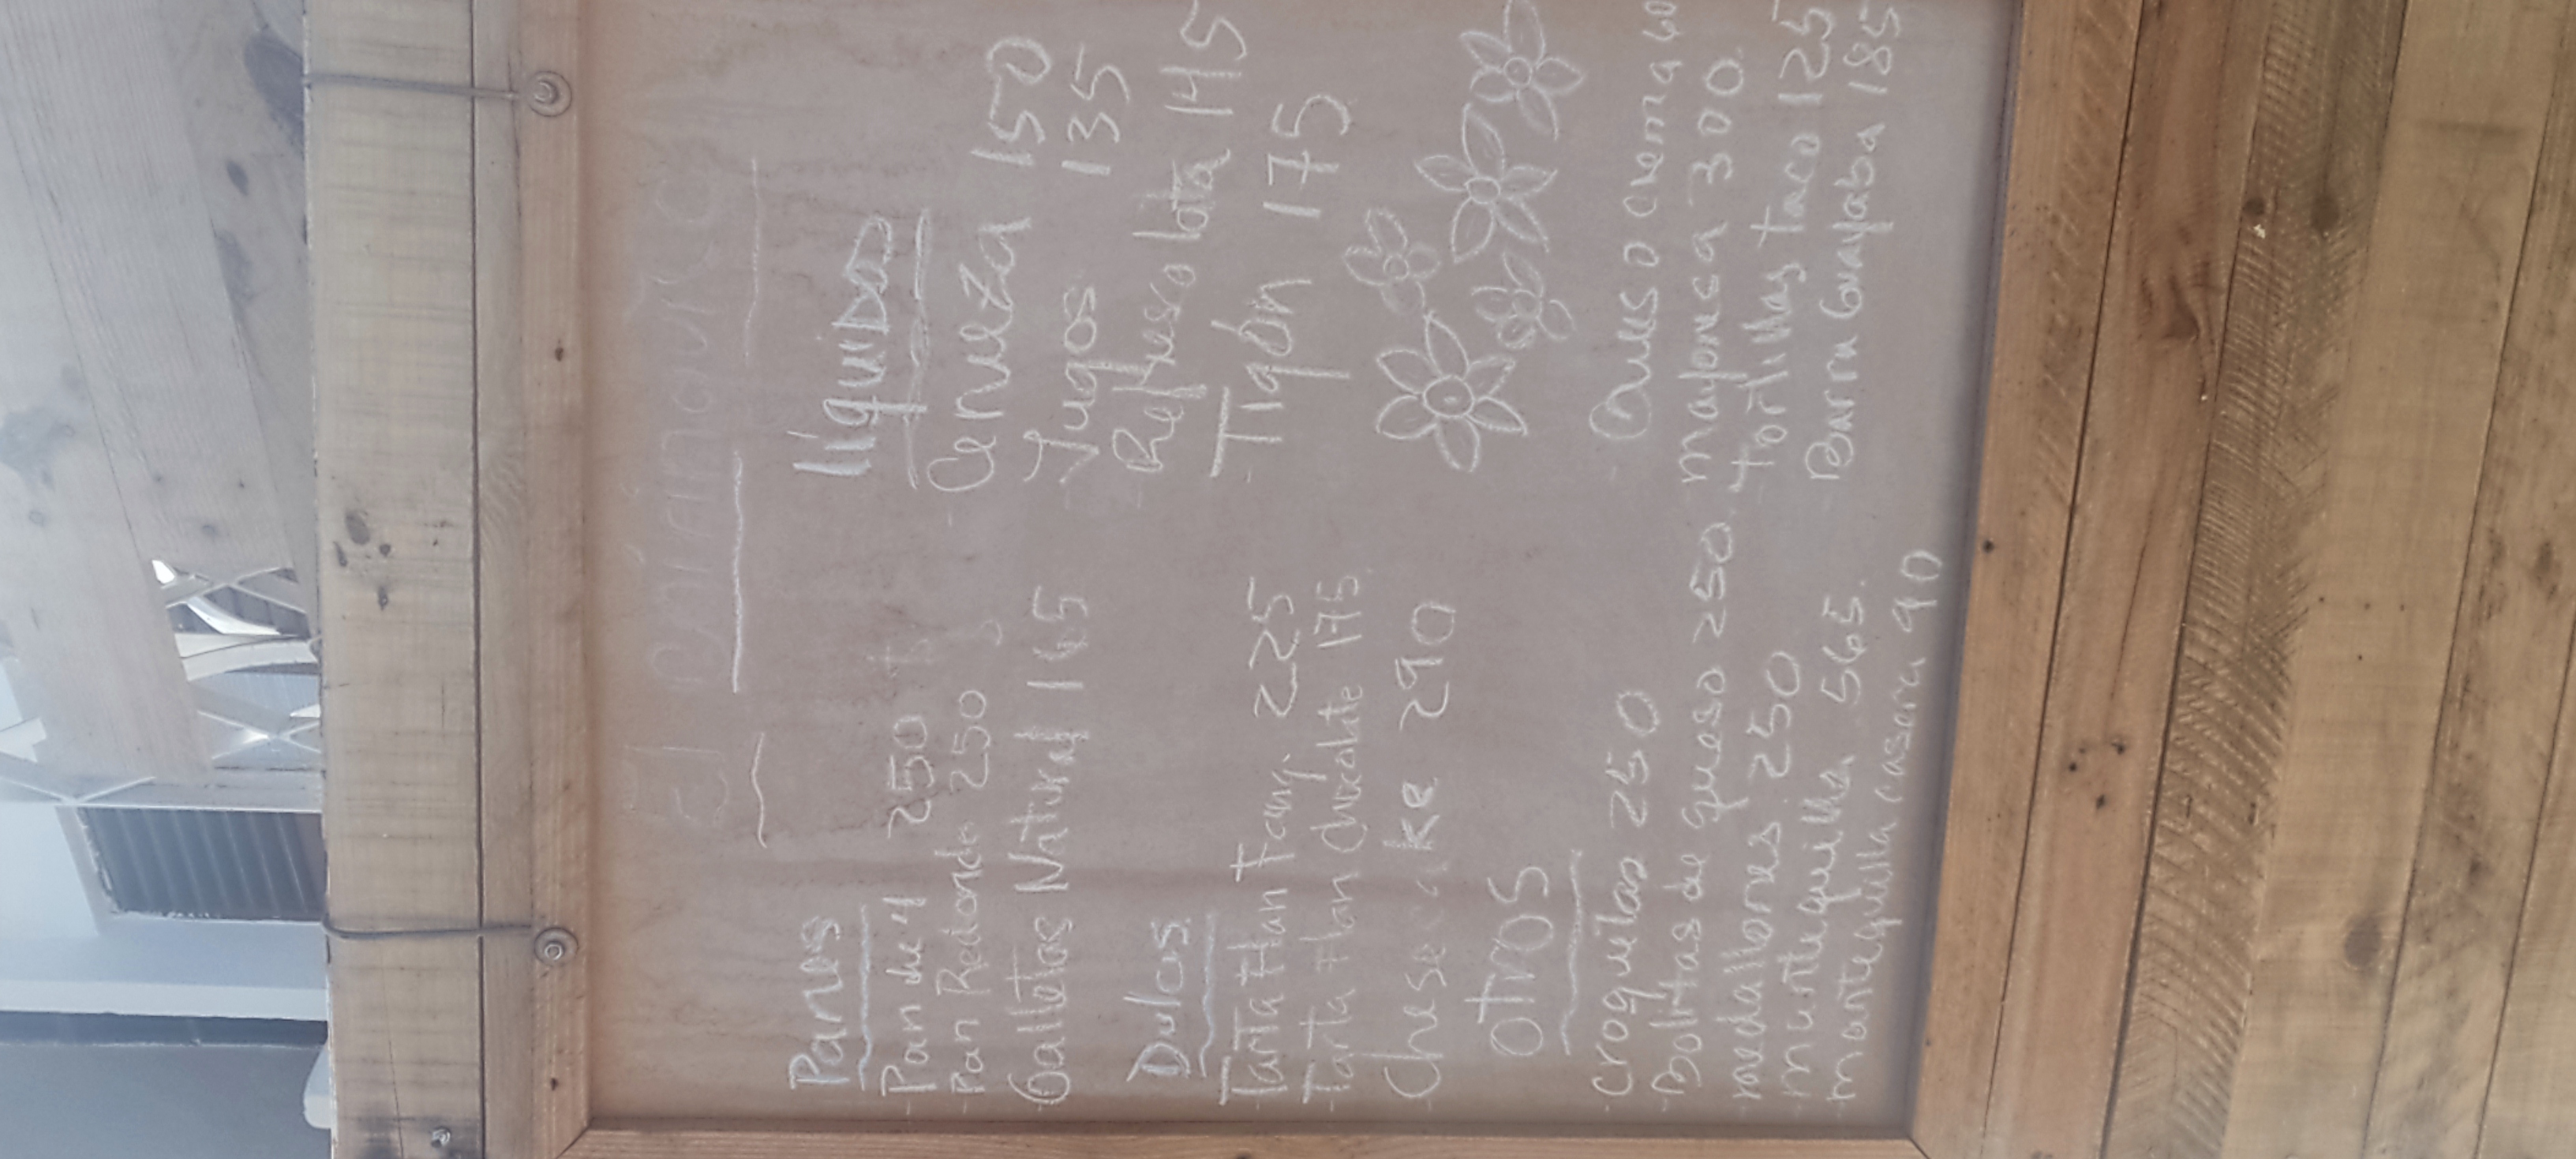 El chirinquito
Panes
- Pan de 4 250
- Pan Redondo 250
- Galletas Natural 165
Dulces
- Tarta Flan 225
- Tarta Flan Chocolate 175
- Chesecake 290
otros
- croquetas 250
- Bolitas de queso 250
- medallones 250
- mantequilla 565.
- mantequilla casera 90
líquidos
- Cerveza 150
- Jugos 135
- Refresco lata 145
- Tigón 175
- Queso crema
mayonesa 300
- Tortillas taco 125
- Barra Guayaba 185